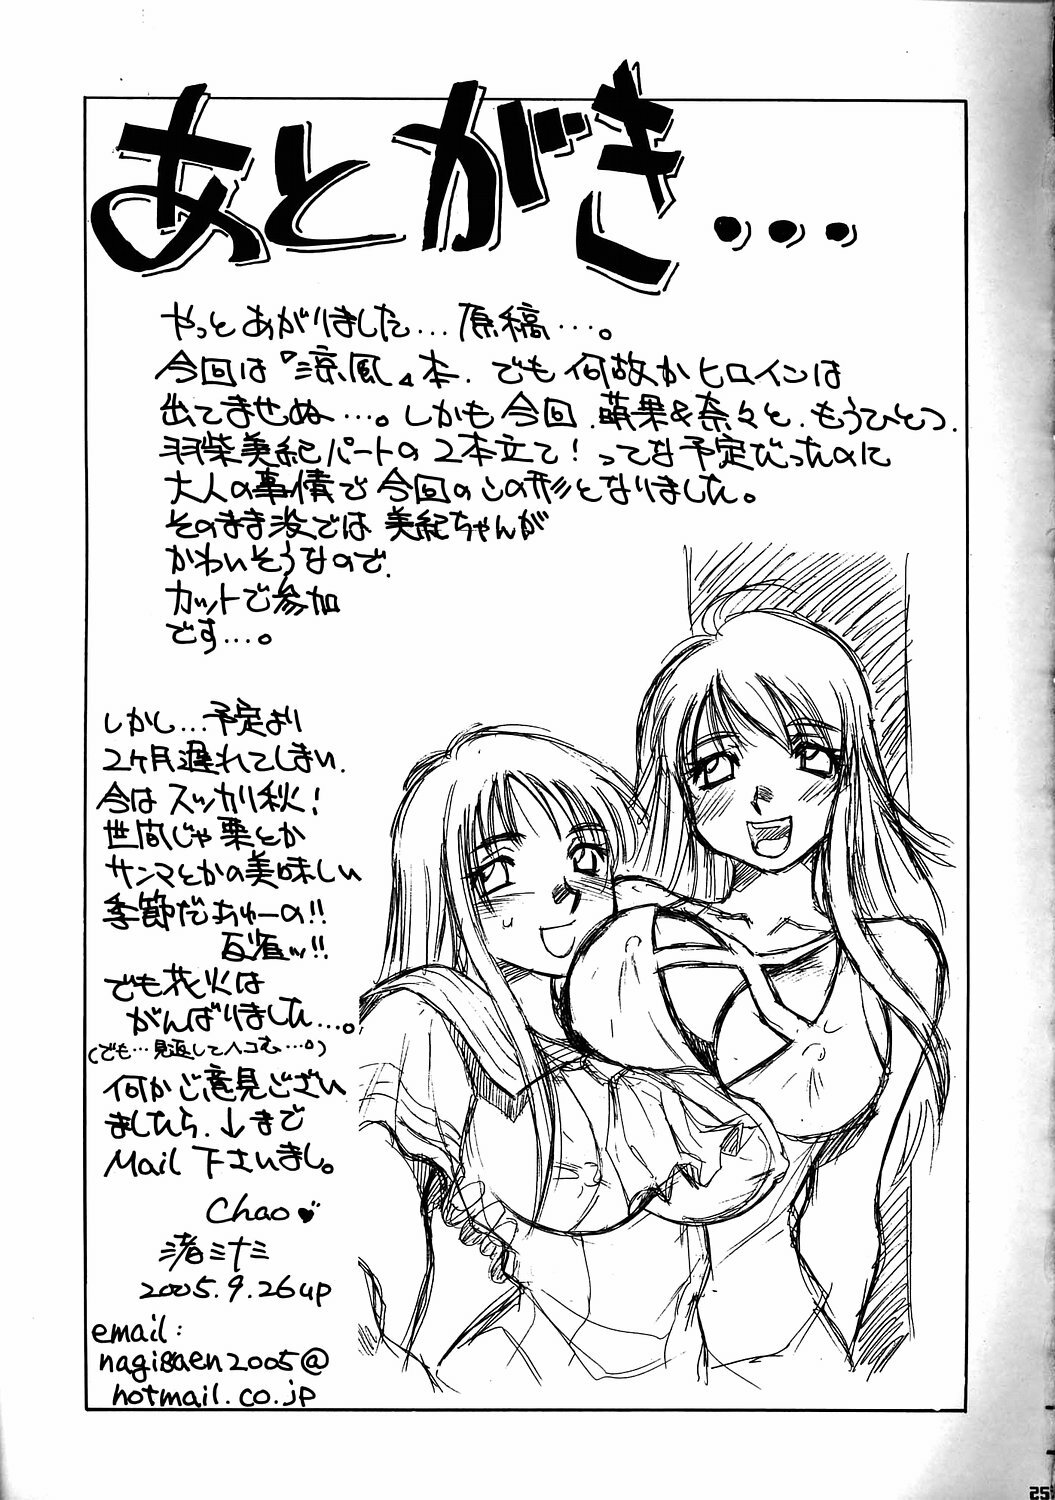 あとがき...
やっとあがりました...原稿...。
今回は『涼風』本.でも何故かヒロインは
出てませぬ...。しかも今回.萌果&奈々と.もうひとつ.
羽柴美紀パートの2本立て!ってな予定だったのに
大人の事情で今回のこの形となりました。
そのまま没では美紀ちゃんが
かわいそうなので.
カットで参加
です...。
しかし...予定より
2ヶ月遅れてしまい.
今はスッカリ秋!
世間じゃ栗とか
サンマとかの美味しい
季節だあゅーの!!
でも花火は
がんばりました...。
(でも...見返してヘコむ...。)
何かご意見ござい
ましたら.↓まで
Mail下さいまし。
Chao♥
渚ミナミ
2005.9.26up
email:
nagisaen2005@
hotmail.co.jp
25